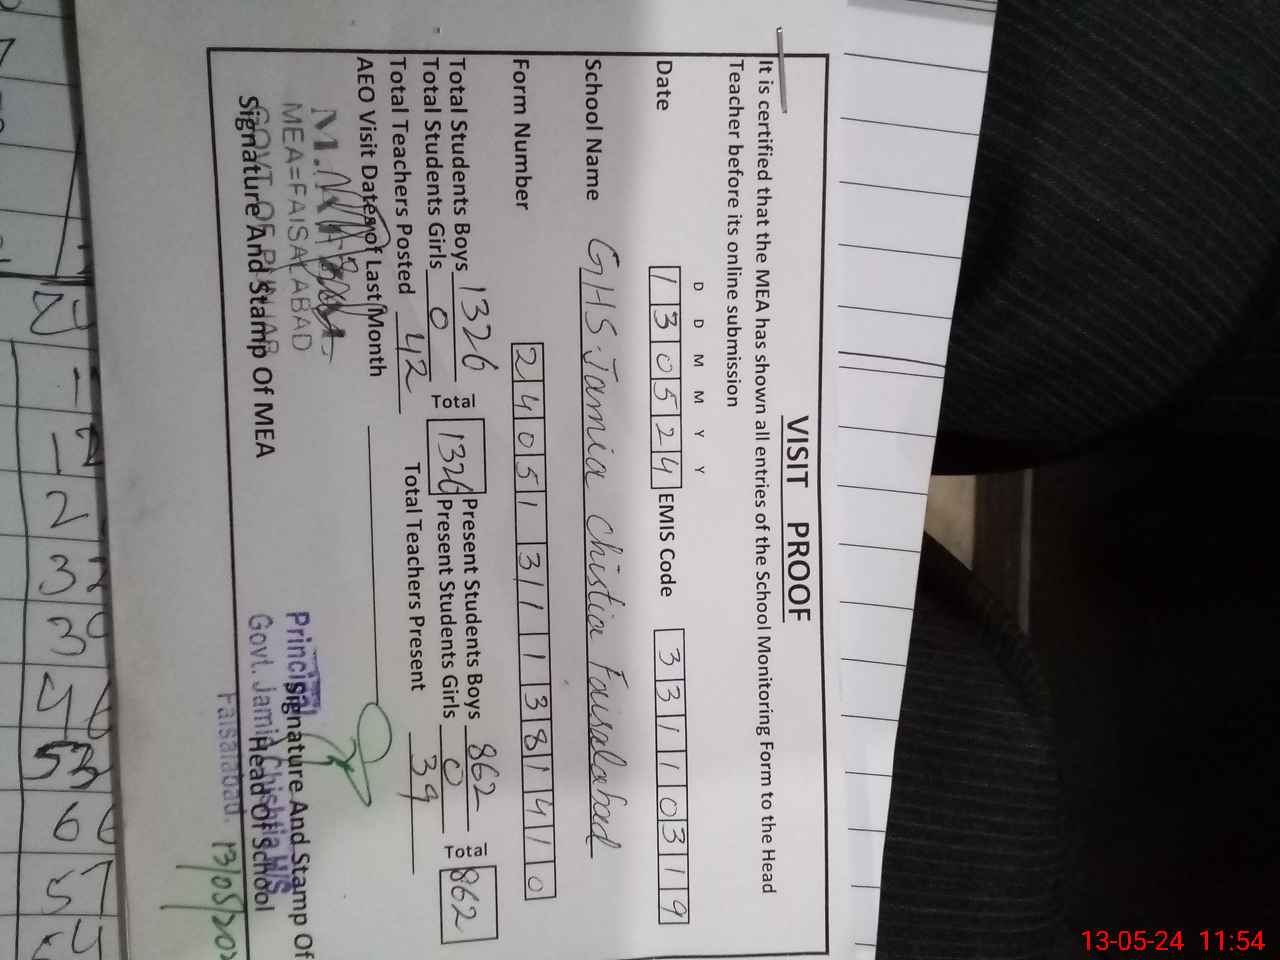 VISIT PROOF
It is certified that the MEA has shown all entries of the School Monitoring Form to the Head
Teacher before its online submission
D D M M Y Y
Date 1 3 0 5 2 4 EMIS Code 3 3 1 1 0 3 1 9
School Name GHS Jamia Chistia Faisalabad
Form Number 2 4 0 5 1 3 1 1 1 3 8 1 4 1 0
Total Students Boys 1326 Total 1326 Present Students Boys 862 Total 862
Total Students Girls 0 Present Students Girls 0
Total Teachers Posted 42 Total Teachers Present 39
AEO Visit Dates of Last Month
MEA=FAISALABAD
GOVT OF PUNJAB
Signature And Stamp Of MEA
Principal
Signature And Stamp Of
Govt. Jamia Chishtia H/S
Head Of School
Faisalabad.
13/05/202
13-05-24 11:54